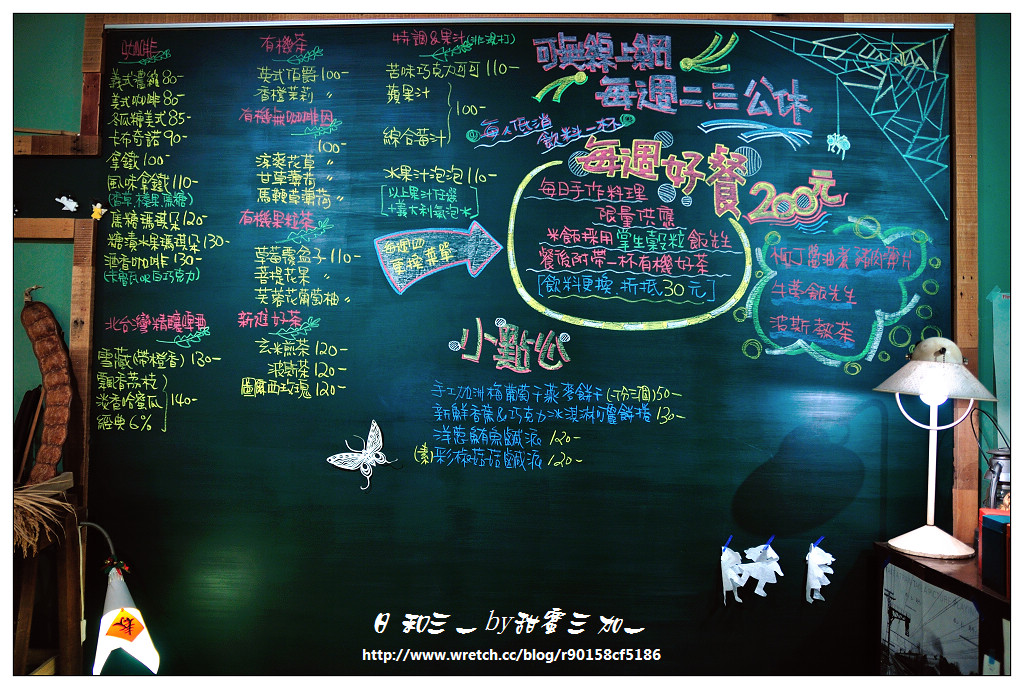 咖啡
義式濃縮 80-
美式咖啡 80-
冬瓜糖美式 85-
卡布奇諾 90-
拿鐵 100-
風味拿鐵 110-
(香草、榛果、焦糖)
焦糖瑪琪朵 120-
糖漬水果瑪琪朵 130-
酒香咖啡 130-
北台灣精釀啤酒
雪藏(帶橙香) 130-
飄香荔枝
淡香哈蜜瓜 140-
經典6%
有機茶
英式伯爵 100-
香橙茉莉 〃
有機無咖啡因
100-
洛麥花草 〃
甘草薄荷 〃
馬鞭草薄荷 〃
有機果粒茶
草莓覆盆子 110-
菩提花果 〃
芙蓉花葡萄柚 〃
新進好茶
玄米煎茶 120-
波斯茶 120-
圖爾西玫瑰 120-
特調&果汁(非濃打)
苦味巧克力可可 110-
蘋果汁
100-
綜合莓汁
冰果汁泡泡 110-
[以上果汁任選
+義大利氣泡水]
每週四
更換菜單
可無線上網
每週二.三公休
每人低消
飲料一杯
每週好餐
200元
每日手作料理
限量供應
米飯採用掌生穀粒飯先生
餐後附帶一杯有機好茶
[飲料更換 折抵30元]
醬油煮豬肉薄片
牛蒡飯先生
波斯熱茶
小點心
手工加州梅葡萄干燕麥餅干(一份三個)50-
新鮮香蕉&巧克力冰淇淋可麗餅捲 130-
洋蔥鮪魚鹹派 120-
(素)彩椒菇菇鹹派 120-
日和三一by甜蜜三加一
http://www.wretch.cc/blog/r90158cf5186